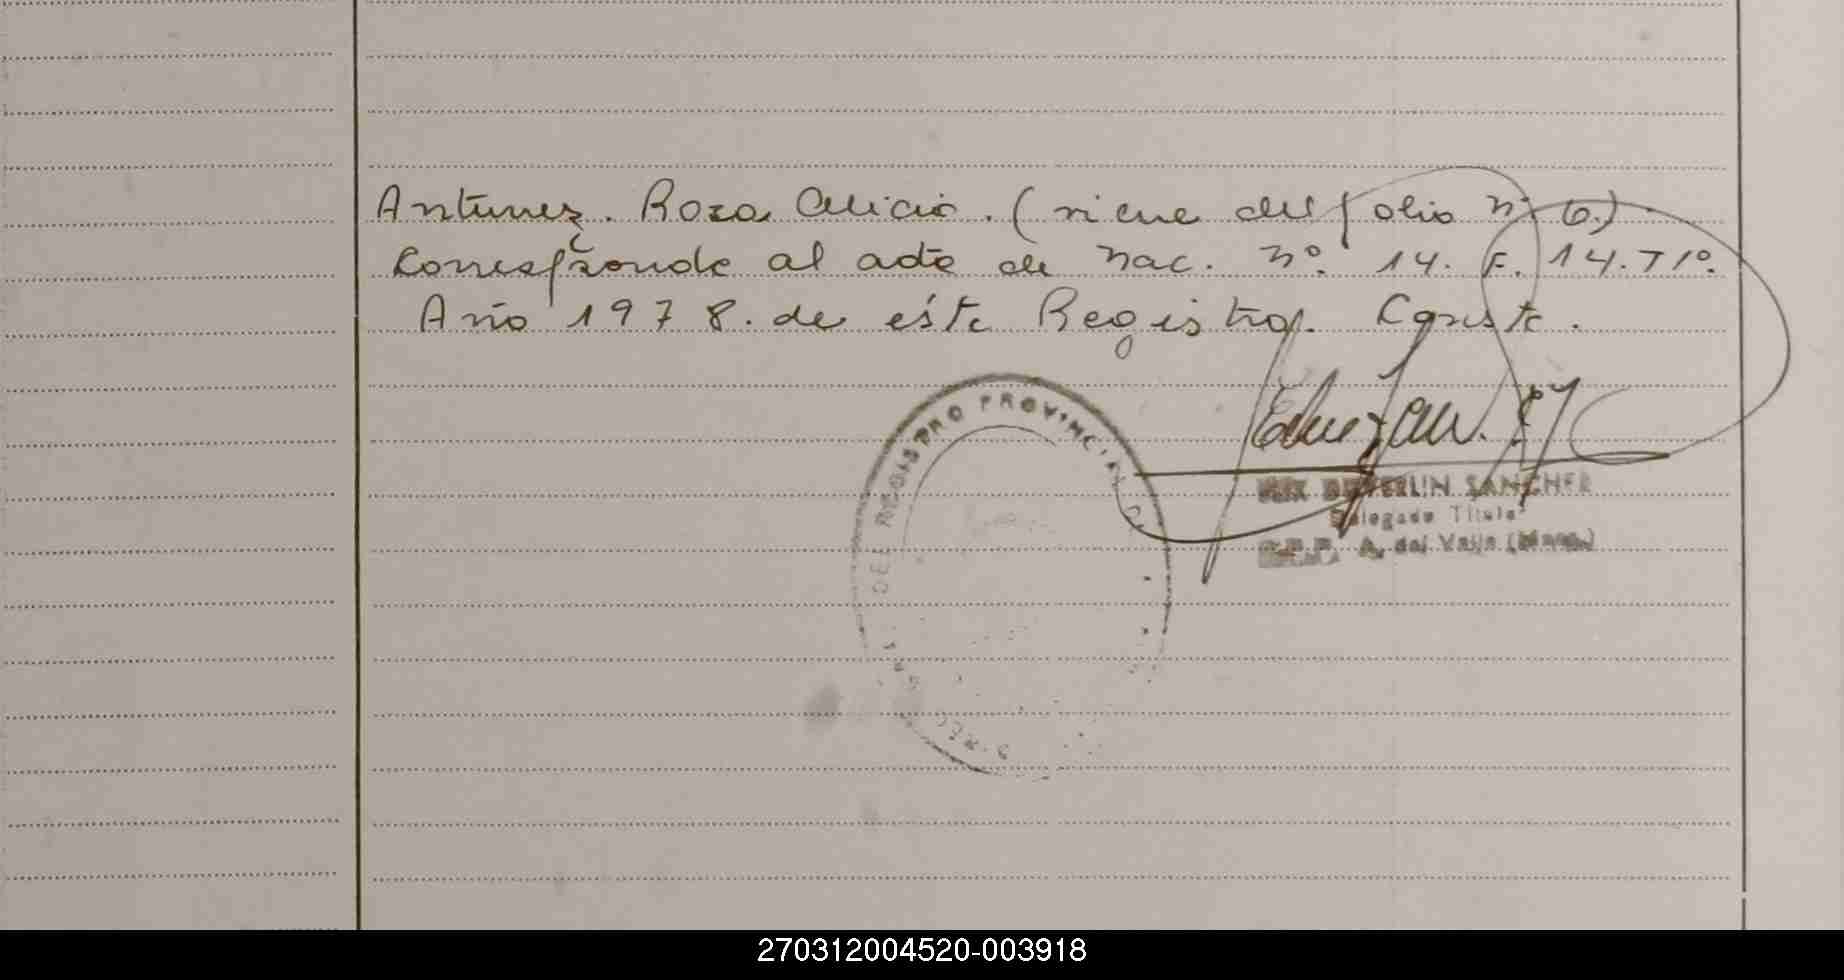 Antunez. Rosa Alicia. (viene del folio nº 6.)
Corresponde al acta de Nac. Nº. 14. F. 14. T1º.
Año 1978. de éste Registro. Conste.
DEL REGISTRO PROVINCIAL
SANCHEZ
Delegado Titular
A. del Valle
270312004520-003918